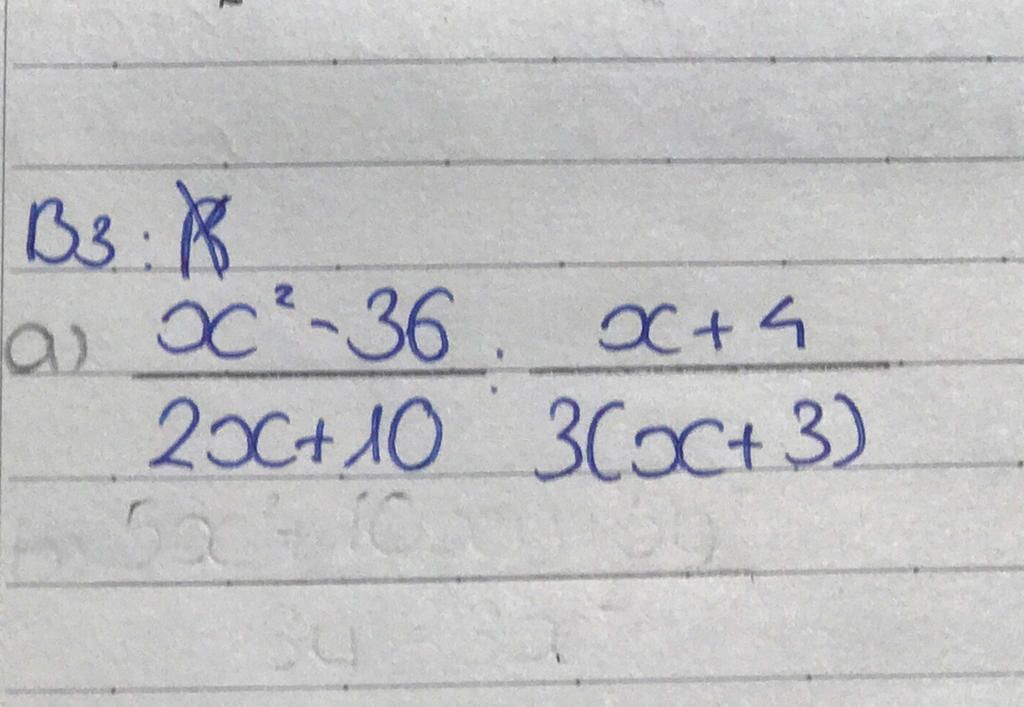 B3:
a) x² - 36 / 2x + 10 : x + 4 / 3(x + 3)